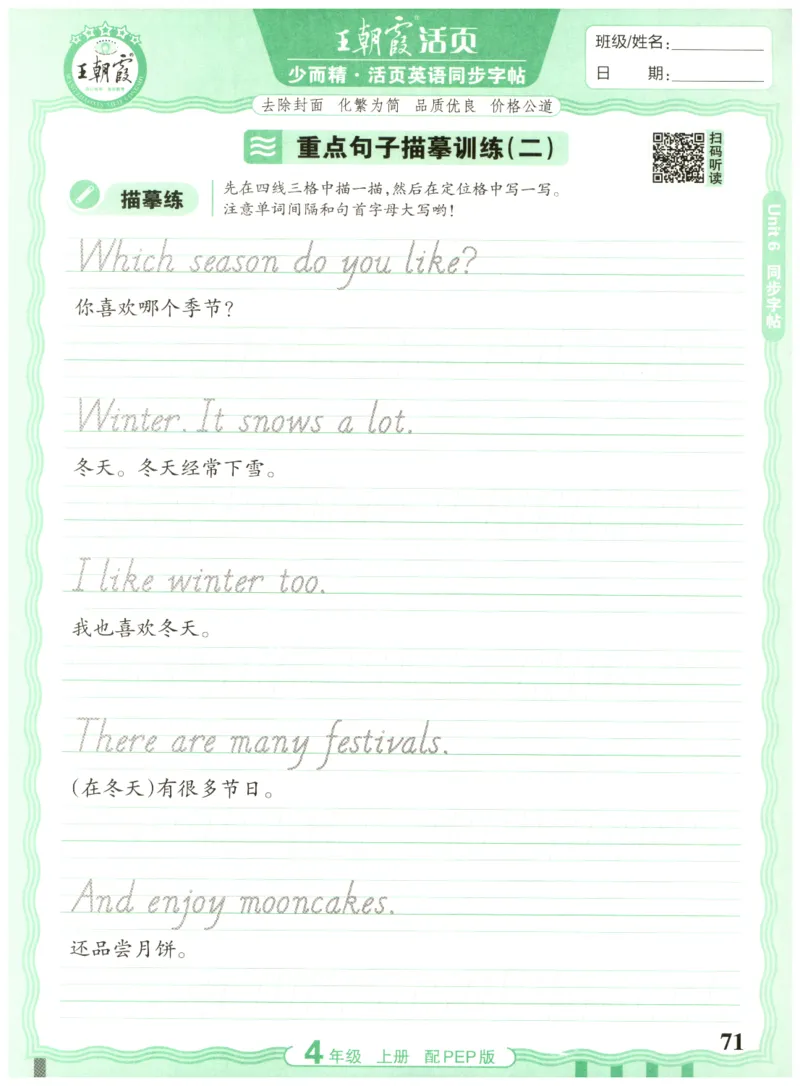 王朝霞®活页
少而精·活页英语同步字帖
王朝霞®
班级/姓名:
日 期:
去除封面 化繁为简 品质优良 价格公道
重点句子描摹训练(二)
扫码听读
描摹练
先在四线三格中描一描,然后在定位格中写一写。
注意单词间隔和句首字母大写哟!
Unit 6 同步字帖
Which season do you like?
你喜欢哪个季节?
Winter. It snows a lot.
冬天。冬天经常下雪。
I like winter too.
我也喜欢冬天。
There are many festivals.
(在冬天)有很多节日。
And enjoy mooncakes.
还品尝月饼。
71
4年级 上册 配PEP版